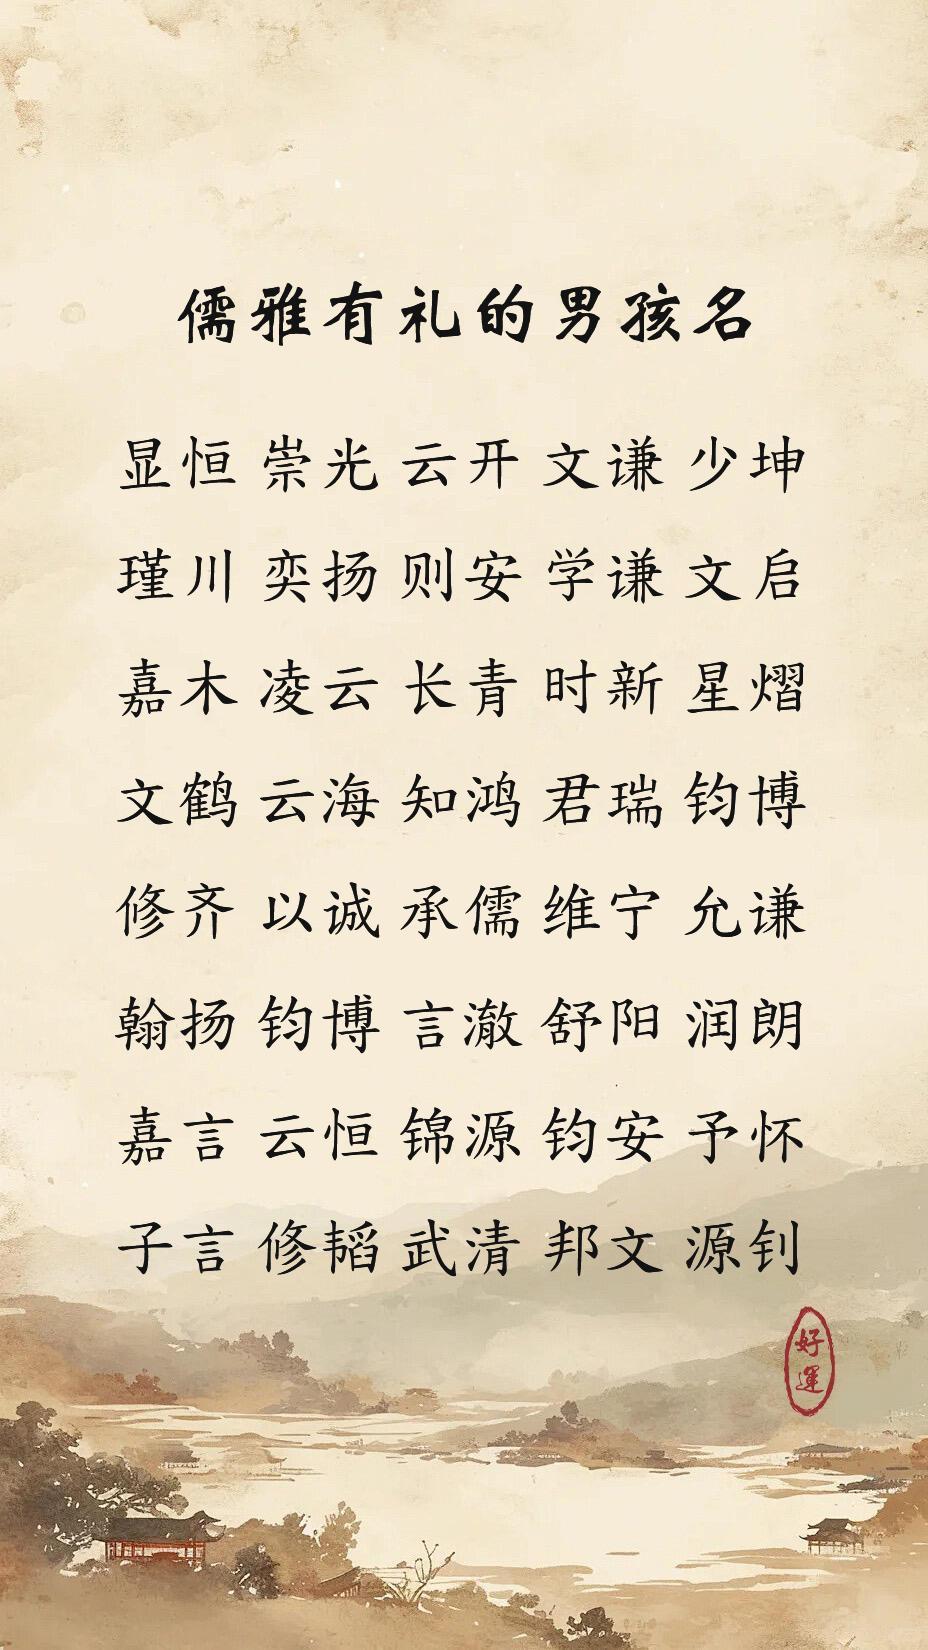 儒雅有礼的男孩名
显恒 崇光 云开 文谦 少坤
瑾川 奕扬 则安 学谦 文启
嘉木 凌云 长青 时新 星熠
文鹤 云海 知鸿 君瑞 钧博
修齐 以诚 承儒 维宁 允谦
翰扬 钧博 言澈 舒阳 润朗
嘉言 云恒 锦源 钧安 予怀
子言 修韬 武清 邦文 源钊
好運